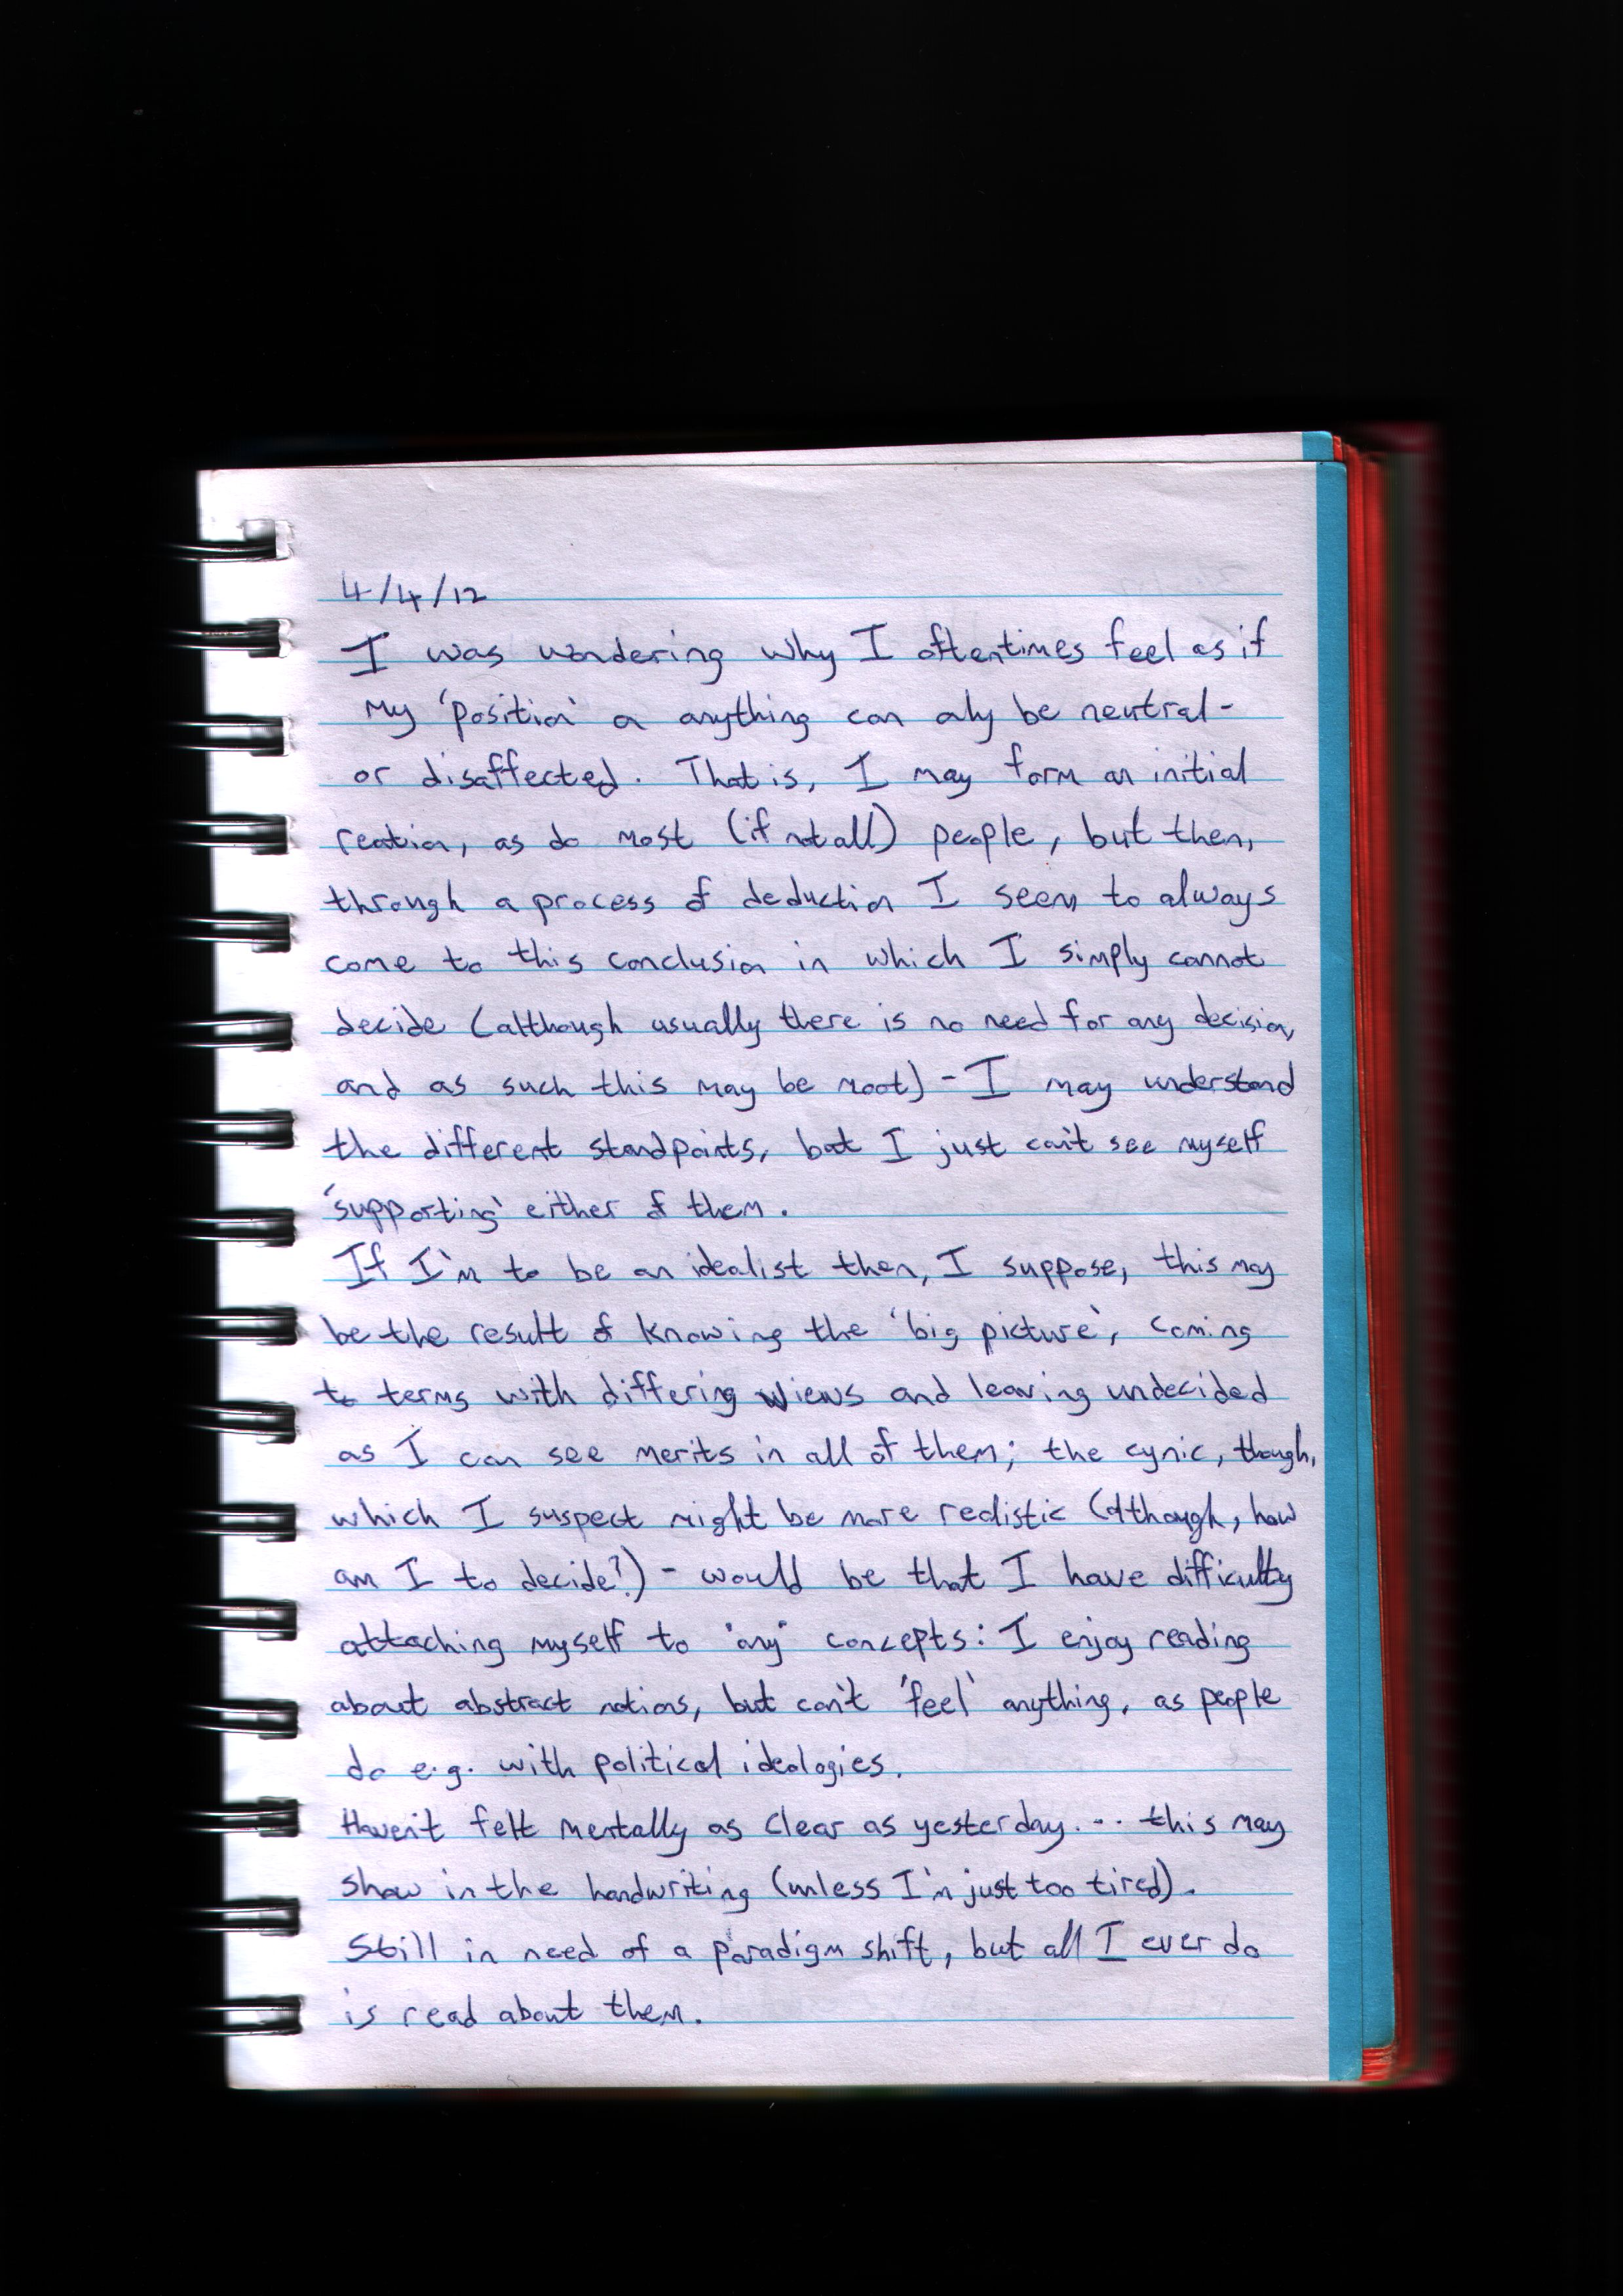 4/4/12
I was wondering why I oftentimes feel as if
my 'position' on anything can only be neutral -
or disaffected. That is, I may form an initial
reation, as do most (if not all) people, but then,
through a process of deduction I seem to always
come to this conclusion in which I simply cannot
decide (although usually there is no need for any decision,
and as such this may be moot) - I may understand
the different standpoints, but I just can't see myself
'supporting' either of them.
If I'm to be an idealist then, I suppose, this may
be the result of knowing the 'big picture', coming
to terms with differing views and leaving undecided
as I can see merits in all of them; the cynic, though,
which I suspect might be more realistic (although, how
am I to decide?) - would be that I have difficulty
attaching myself to "any" concepts: I enjoy reading
about abstract notions, but can't 'feel' anything, as people
do e.g. with political ideologies.
Haven't felt mentally as clear as yesterday... this may
show in the handwriting (unless I'm just too tired).
Still in need of a paradigm shift, but all I ever do
is read about them.